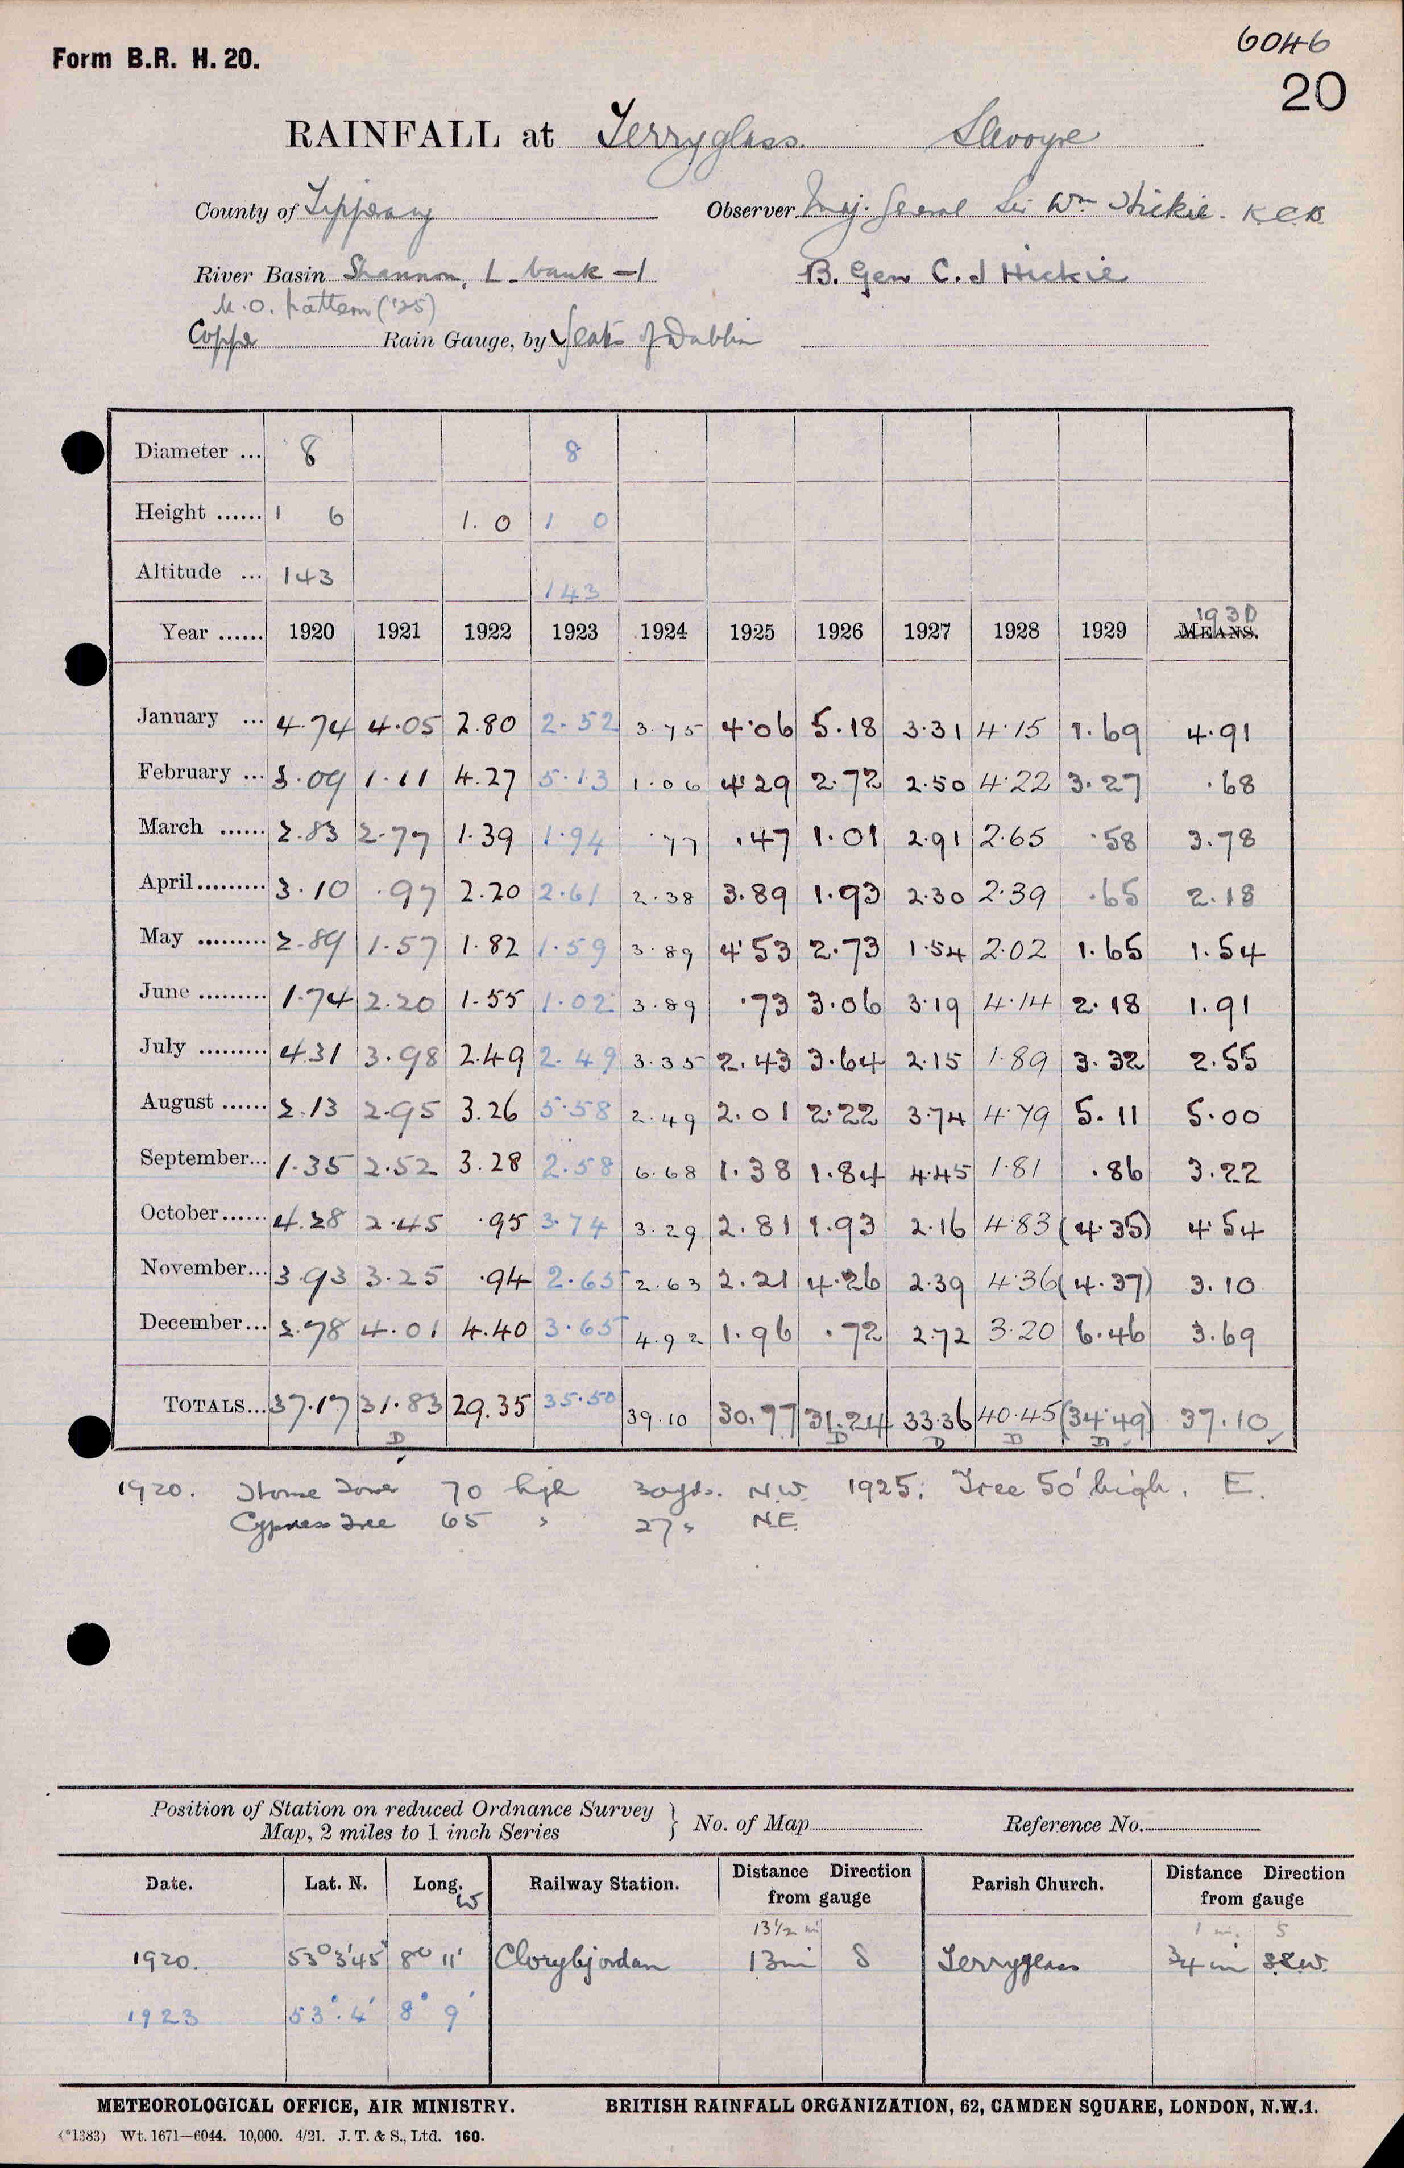 6046
Form B.R. H. 20.
20
RAINFALL at Terryglass. Slevoyre
County of Tipperary Observer Maj. General Sir Wm Hickie. K.C.B.
River Basin Shannon, L. bank -1 B. Gen C. J Hickie
M.O. pattern ('25)
Copper Rain Gauge, by Yeates of Dublin
Diameter ... 8 8
Height ...... 1 6 1. 0 1 0
Altitude ... 143 143
1930
Year ...... 1920 1921 1922 1923 1924 1925 1926 1927 1928 1929 MEANS.
January ... 4.74 4.05 2.80 2.52 3.75 4.06 5.18 3.31 4.15 1.69 4.91
February ... 3.09 1.11 4.27 5.13 1.06 4.29 2.72 2.50 4.22 3.27 .68
March ...... 2.83 2.77 1.39 1.94 .77 .47 1.01 2.91 2.65 .58 3.78
April......... 3.10 .97 2.20 2.61 2.38 3.89 1.93 2.30 2.39 .65 2.18
May ......... 2.89 1.57 1.82 1.59 3.89 4.53 2.73 1.54 2.02 1.65 1.54
June ......... 1.74 2.20 1.55 1.02 3.89 .73 3.06 3.19 4.14 2.18 1.91
July ......... 4.31 3.98 2.49 2.49 3.35 2.43 3.64 2.15 1.89 3.32 2.55
August ...... 2.13 2.95 3.26 5.58 2.49 2.01 2.22 3.74 4.79 5.11 5.00
September... 1.35 2.52 3.28 2.58 6.68 1.38 1.84 4.45 1.81 .86 3.22
October...... 4.28 2.45 .95 3.74 3.29 2.81 1.93 2.16 4.83 (4.35) 4.54
November... 3.93 3.25 .94 2.65 2.63 2.21 4.26 2.39 4.36 (4.37) 3.10
December... 2.78 4.01 4.40 3.65 4.92 1.96 .72 2.72 3.20 6.46 3.69
TOTALS... 37.17 31.83 29.35 35.50 39.10 30.77 31.24 33.36 40.45 (34.49) 37.10 ✓
D D D D D
1920. Stone Tower 70 high 30yds. N.W. 1925. Tree 50' high. E.
Cypress Tree 65 " 27 " N.E.
Position of Station on reduced Ordnance Survey
Map, 2 miles to 1 inch Series } No. of Map Reference No.
Date. Lat. N. Long. W Railway Station. Distance Direction from gauge Parish Church. Distance Direction from gauge
13½ mi 1 mi. S
1920. 53° 3' 45" 8° 11' Cloughjordan 13 mi S Terryglass ¾ mi SSW.
1923 53°. 4' 8° 9'
METEOROLOGICAL OFFICE, AIR MINISTRY. BRITISH RAINFALL ORGANIZATION, 62, CAMDEN SQUARE, LONDON, N.W.1.
(*1383) Wt. 1671—6044. 10,000. 4/21. J. T. & S., Ltd. 160.